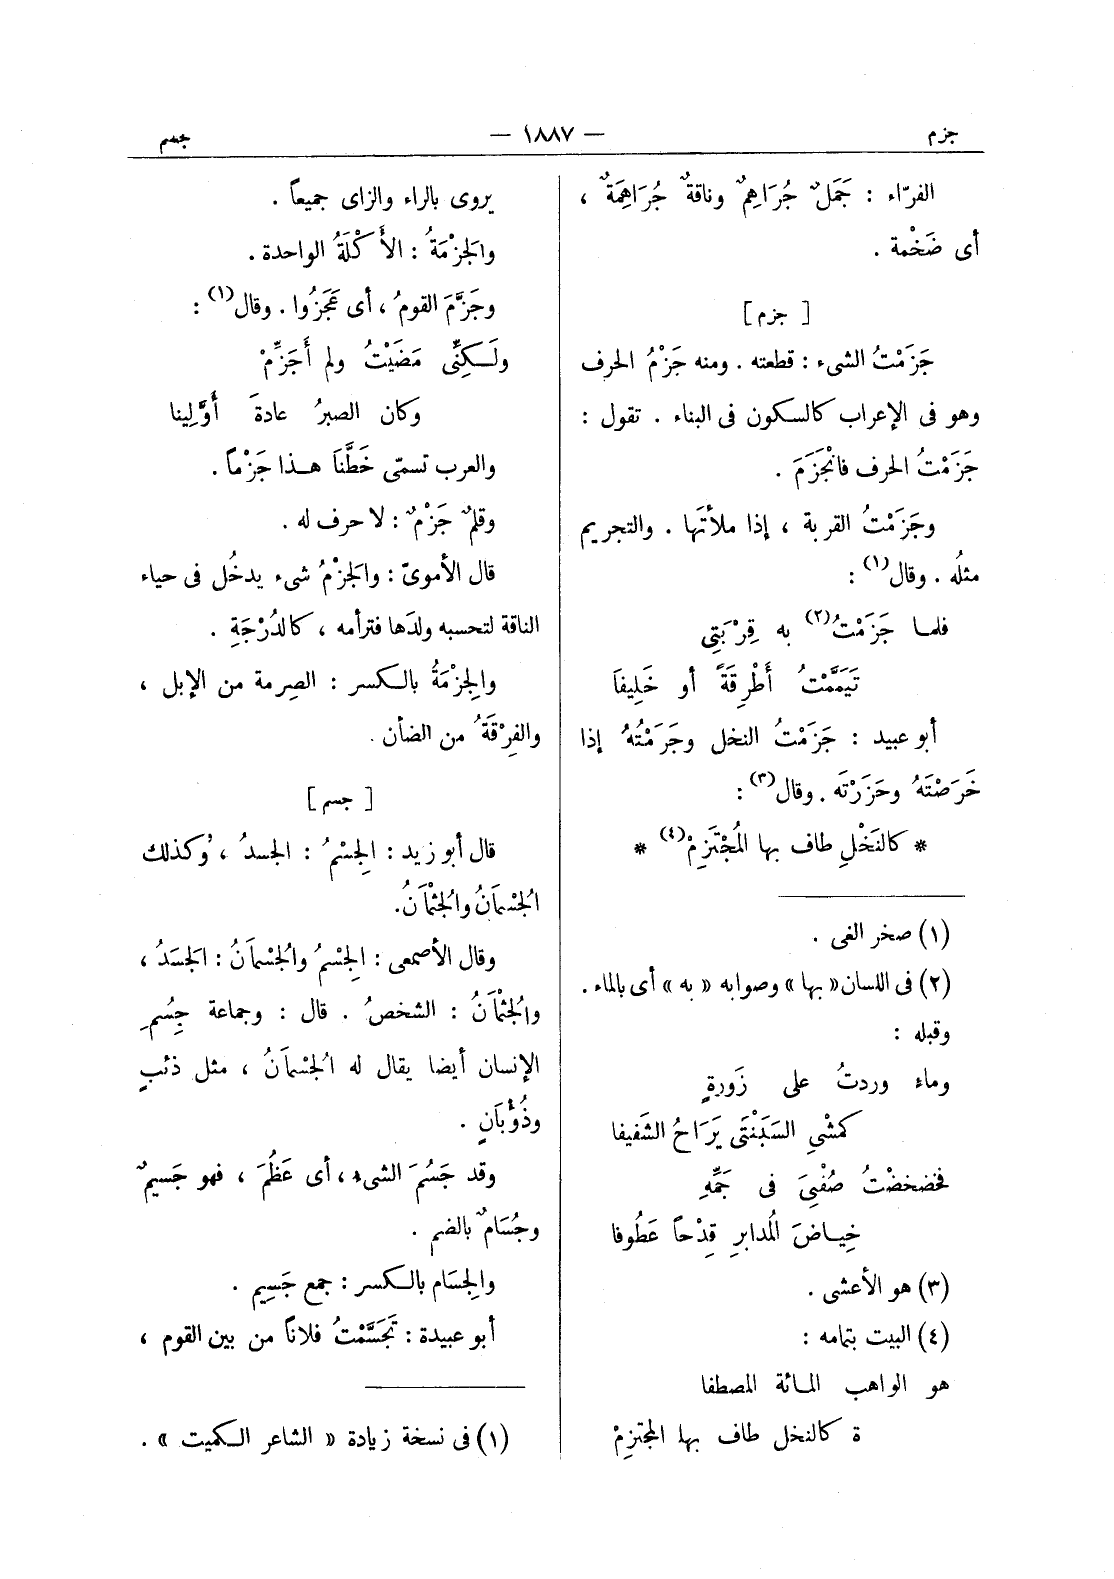 جزم — ١٨٨٧ — جسم
الفرّاء : جَمَلٌ جُرَاهِمٌ وناقةٌ جُرَاهِمَةٌ ،
أى ضَخْمة .
[ جزم ]
جَزَمْتُ الشىء : قطعته . ومنه جَزْمُ الحرف
وهو فى الإعراب كالسكون فى البناء . تقول :
جَزَمْتُ الحرف فانْجَزَمَ .
وجَزَمْتُ القربة ، إذا ملأتَها . والتجريم
مثلُه . وقال(١) :
فلما جَزَمْتُ(٢) به قِرْبَتِى
تَيَمَّمْتُ أَطْرِقَةً أو خَلِيفَا
أبو عبيد : جَزَمْتُ النخل وجَرَمْتُهُ إذا
خَرَصْتَهُ وحَزَرْتَه . وقال(٣) :
* كالنَخْلِ طاف بها المُجْتَزِمْ(٤) *
(١) صخر الغى .
(٢) فى اللسان « بها » وصوابه « به » أى بالماء .
وقبله :
وماء وردتُ على زَورةٍ
كمشْىِ السَبَنْتَى يَرَاحُ الشَفيفا
فخضخضْتُ صُفْنِىَ فى جَمِّهِ
خِيـاضَ المُدابرِ قِدْحاً عَطُوفا
(٣) هو الأعشى .
(٤) البيت بتمامه :
هو الواهب المـائة المصطفا
ة كالنخل طاف بها المجتزِمْ
يروى بالراء والزاى جميعاً .
والجَزْمَةُ : الأَكْلَةُ الواحدة .
وجَزَّمَ القومُ ، أى عَجَزُوا . وقال(١) :
ولَـكِنِّى مَضَيْتُ ولم أُجَزِّمْ
وكان الصبرُ عادةَ أوَّلِينا
والعرب تسمّى خَطَّنَا هـذا جَزْماً .
وقلمٌ جَزْمٌ : لا حرف له .
قال الأموىّ : والجَزْمُ شىء يدخُل فى حياء
الناقة لتحسبه ولدَها فترأمه ، كالدُرْجَةِ .
والجِزْمَةُ بالـكسر : الصِرمة من الإبل ،
والفِرْقَةُ من الضأن .
[ جسم ]
قال أبو زيد : الجِسْمُ : الجسدُ ، وكذلك
الجُسْمَانُ والجُثْمَانُ.
وقال الأصمعى : الجِسْمُ والجُسْمَانُ : الجَسَدُ ،
والجُثْمَانُ : الشخصُ . قال : وجماعة جِسْمِ
الإنسان أيضا يقال له الجُسْمَانُ ، مثل ذئبٍ
وذُؤْبَانٍ .
وقد جَسُمَ الشىء ، أى عَظُمَ ، فهو جَسيمٌ
وجُسَامٌ بالضم .
والجِسَام بالـكسر : جمع جَسِيم .
أبو عبيدة : تَجَسَّمْتُ فلاناً من بين القوم ،
(١) فى نسخة زيادة « الشاعر الـكميت » .